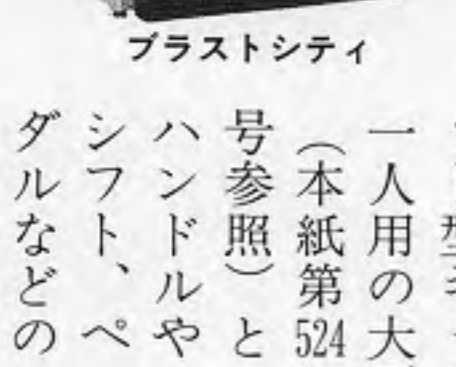 ブラストシティ
一人用の大
（本紙第524
号参照）と
ハンドルや
シフト、ペ
ダルなどの